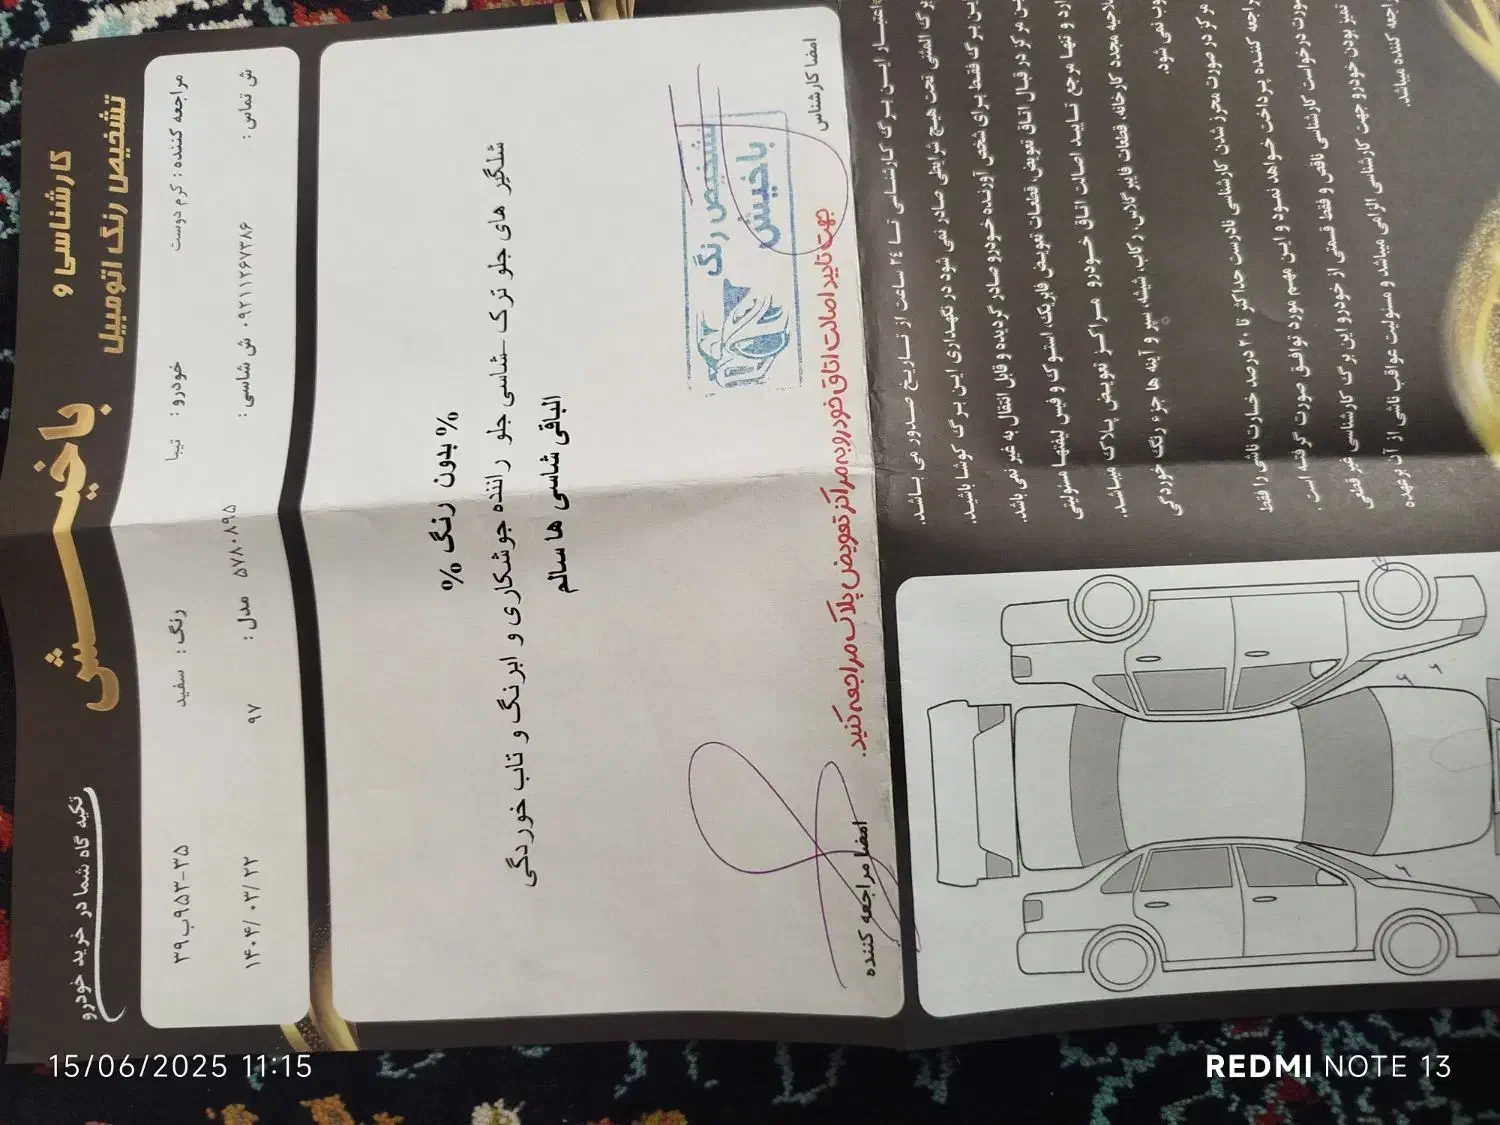 کارشناسی و
تشخیص رنگ اتومبیل
باخیش
تکیه گاه شما در خرید خودرو
مراجعه کننده : کرم دوست
خودرو : تیبا
رنگ : سفید
۳۹ب۹۵۳-۳۵
ش تماس :
۰۹۲۱۱۲۶۷۳۸۶
ش شاسی :
۵۷۸۰۸۹۵
مدل :
۹۷
۱۴۰۴/۰۳/۲۲
% بدون رنگ %
شلگیر های جلو ترک -شاسی جلو راننده جوشکاری و ابرنگ و تاب خوردگی
الباقی شاسی ها سالم
تشخیص رنگ
باخیش
امضا کارشناس
جهت تایید اصالت اتاق خودرو به مراکز تعویض پلاک مراجعه کنید.
امضا مراجعه کننده
اعتبار این برگ کارشناسی تا ۲۴ ساعت از تاریخ صدور می باشد.
برگ المثنی تحت هیچ شرایطی صادر نمی شود در نگهداری این برگ کوشا باشید.
این برگ فقط برای شخص آورنده خودرو صادر گردیده و قابل انتقال به غیر نمی باشد.
مرکز در قبال اتاق تعویض، قطعات تعویض فابریک، استوک و فیس لیفتها مسئولیتی
دارد و تنها مرجع تایید اصالت اتاق خودرو مراکز تعویض پلاک میباشد.
مجدد کارخانه، قطعات فایبرگلاس، رکاب، شیشه، سپر و آینه ها جزء رنگ خوردگی
نمی شود.
مرکز در صورت محرز شدن کارشناسی نادرست حداکثر تا ۲۰ درصد خسارت ناشی را فقط
مراجعه کننده پرداخت خواهد نمود و این مهم مورد توافق صورت گرفته است .
صورت درخواست کارشناسی ناقص و فقط قسمتی از خودرو این برگ کارشناسی غیر قطعی
تمیز بودن خودرو جهت کارشناسی الزامی میباشد و مسئولیت عواقب ناشی از آن برعهده
مراجعه کننده میباشد.
15/06/2025 11:15
REDMI NOTE 13